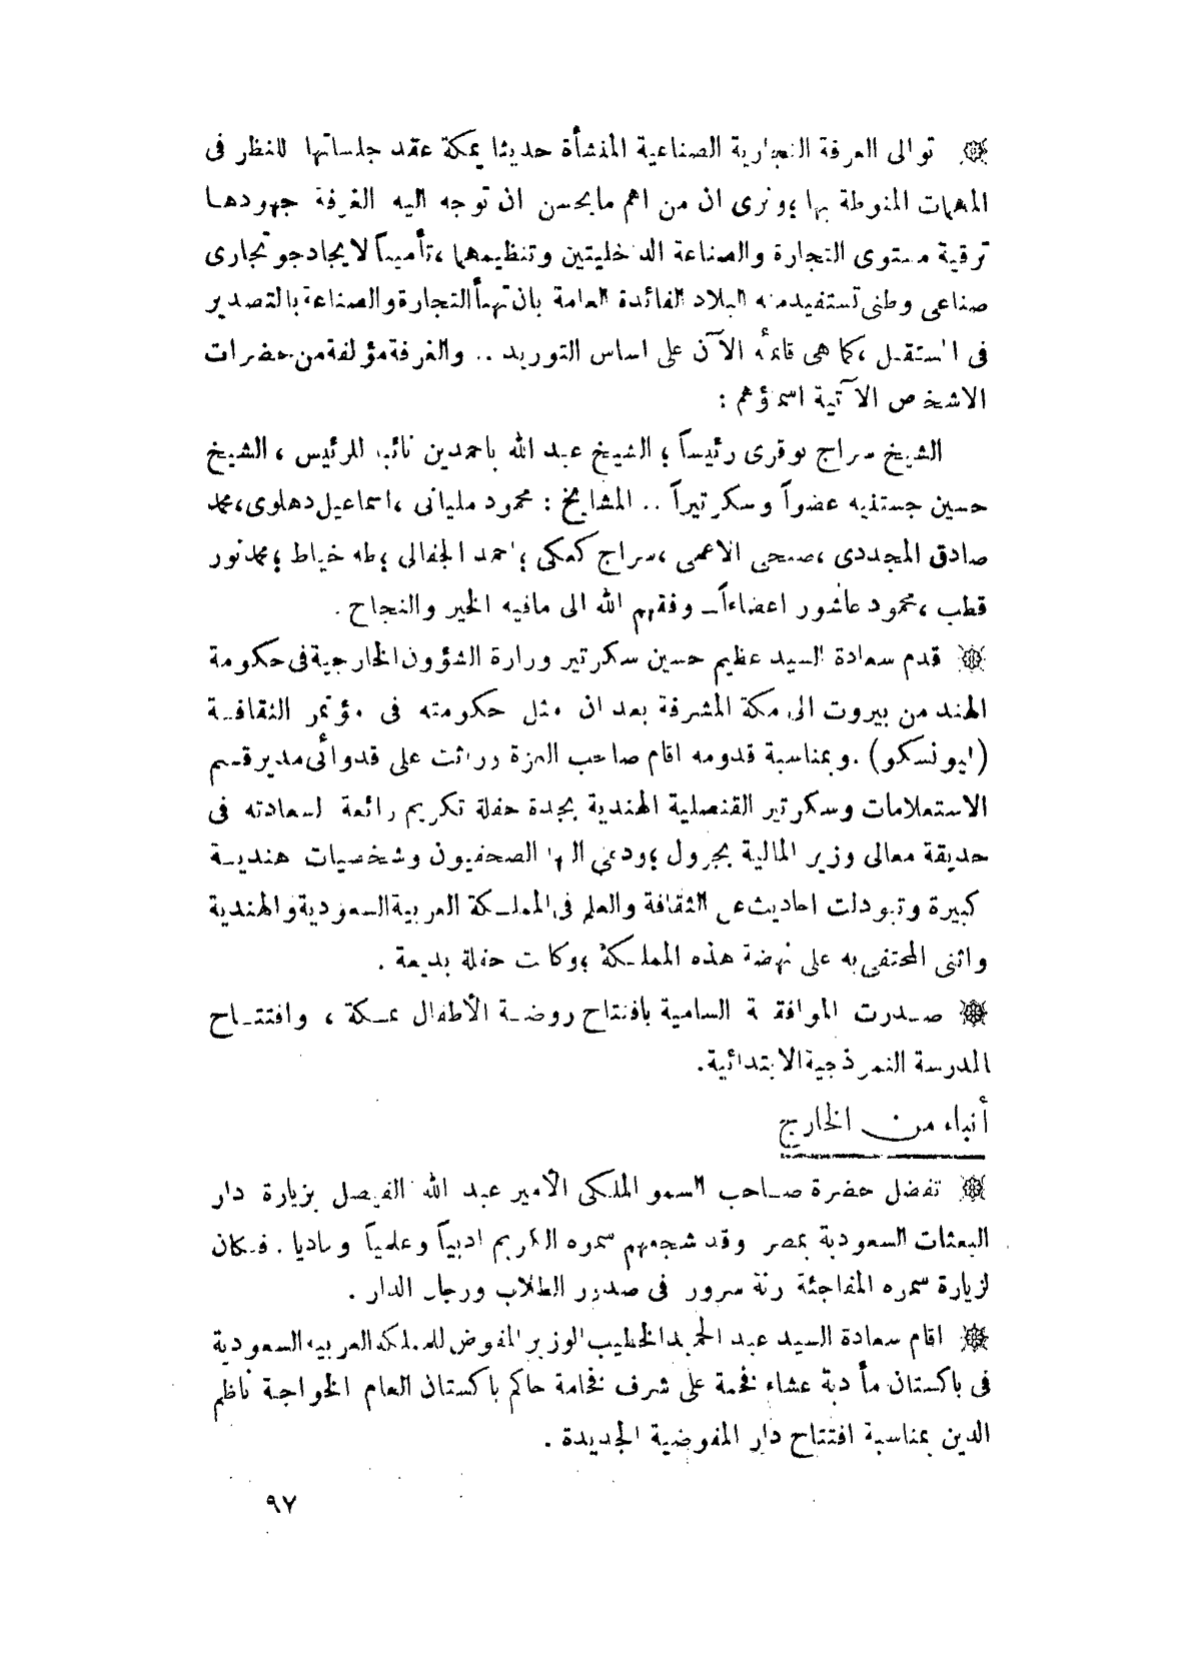 توالى الغرفة التجارية الصناعية المنشأة حديثا بمكة عقد جلساتها للنظر فى
المهمات المنوطة بها؛ ونرى ان من اهم مايحسن ان توجه اليه الغرفة جهودها
ترقية مستوى التجارة والصناعة الداخليتين وتنظيمهما ،تأميناً لايجاد جو تجارى
صناعى وطنى تستفيد منه البلاد الفائدة العامة بان تهيأ التجارة والصناعة بالتصدير
فى المستقبل ،كما هى قائمة الآن على اساس التوريد .. والغرفة مؤلفة من حضرات
الاشخاص الآتية اسماؤهم :
الشيخ سراج بوقرى رئيساً ؛ الشيخ عبد الله باحمدين نائب للرئيس ، الشيخ
حسين جستنيه عضواً وسكرتيراً .. المشايخ : محمود مليانى ،اسماعيل دهلوى، محمد
صادق المجددى ،صبحى الاعمى ،سراج كعكى ؛احمد الجفالى ؛طه خياط ؛محمد نور
قطب ،محمود عاشور اعضاءاً ـ وفقهم الله الى مافيه الخير والنجاح .
قدم سعادة السيد عظيم حسين سكرتير وزارة الشؤون الخارجية فى حكومة
الهند من بيروت الى مكة المشرفة بعد ان مثل حكومته فى مؤتمر الثقافة
(اليونسكو) .وبمناسبة قدومه اقام صاحب العزة على قدوائى مدير قسم
الاستعلامات وسكرتير القنصلية الهندية بجدة حفلة تكريم رائعة لسعادته فى
حديقة معالى وزير المالية بجرول ؛ودعى اليها الصحفيون وشخصيات هندية
كبيرة وتبودلت احاديث عن الثقافة والعلم فى المملكة العربية السعودية والهندية
واثنى المحتفى به على نهضة هذه المملكة ؛وكانت حفلة بديعة .
صدرت الموافقة السامية بافتتاح روضة الأطفال بمكة ، وافتتاح
المدرسة النموذجية الابتدائية.
أنباء من الخارج
تفضل حضرة صاحب السمو الملكى الأمير عبد الله الفيصل بزيارة دار
البعثات السعودية بمصر وقد شجعهم سموه الكريم ادبياً وعلمياً وماديا . فكان
لزيارة سموه المفاجئة رنة سرور فى صدور الطلاب ورجال الدار .
اقام سعادة السيد عبد الحميد الخطيب الوزير المفوض للمملكة العربية السعودية
فى باكستان مأدبة عشاء فخمة على شرف فخامة حاكم باكستان العام الخواجة ناظم
الدين بمناسبة افتتاح دار المفوضية الجديدة .
٩٧